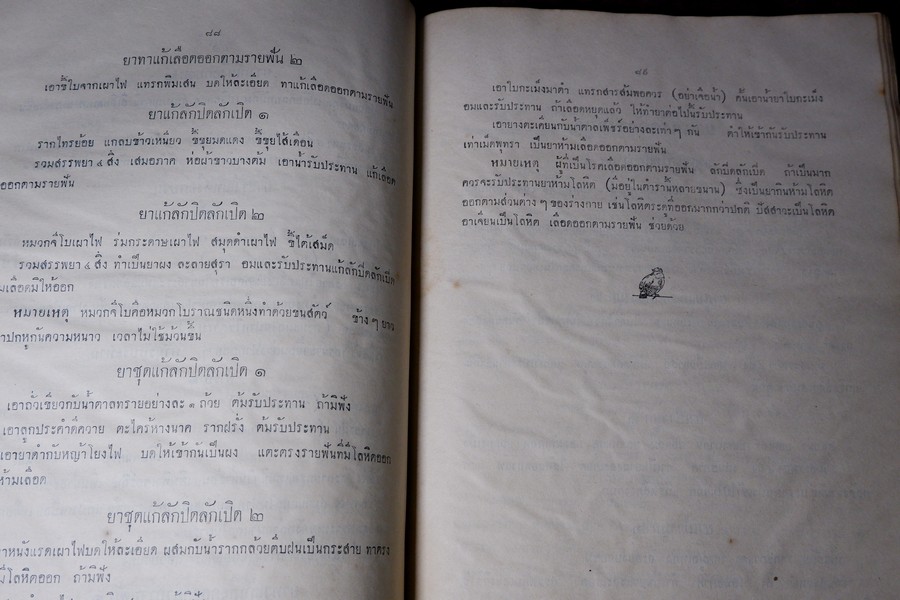 ๘๘
ยาทาแก้เลือดออกตามรายฟัน ๒
เอาขี้ใบจากเผาไฟ แทรกพิมเสน บดให้ละเอียด ทาแก้เลือดออกตามรายฟัน
ยาแก้ลักปิดลักเปิด ๑
รากไทรย้อย แกลบข้าวเหนียว ขี้ขุยมดแดง ขี้ขุยไส้เดือน
รวมสรรพยา ๔ สิ่ง เสมอภาค ห่อผ้าขาวบางต้ม เอาน้ำรับประทาน แก้เลือด
ออกตามรายฟัน
ยาแก้ลักปิดลักเปิด ๒
หมวกจีโบเผาไฟ ร่มกระดาษเผาไฟ สมุดดำเผาไฟ ขี้ใต้เสม็ด
รวมสรรพยา ๔ สิ่ง ทำเป็นยาผง ละลายสุรา อมและรับประทานแก้ลักปิดลักเปิด
มเลือดมิให้ออก
หมายเหตุ หมวกจีโบคือหมวกโบราณชนิดหนึ่งทำด้วยขนสัตว์ ข้างๆ ยาว
าปกหูกันความหนาว เวลาไม่ใช้ม้วนขึ้น
ยาชุดแก้ลักปิดลักเปิด ๑
เอาถั่วเขียวกับน้ำตาลทรายอย่างละ ๑ ถ้วย ต้มรับประทาน ถ้ามิฟัง
เอาลูกประคำดีควาย ตะไคร้หางนาค รากฝรั่ง ต้มรับประทาน
เอายาดำกับหญ้าโยงไฟ บดให้เข้ากันเป็นผง แตะตรงรายฟันที่มีโลหิตออก
ห้ามเลือด
ยาชุดแก้ลักปิดลักเปิด ๒
าหนังแรดเผาไฟบดให้ละเอียด ผสมกับน้ำรากกล้วยตีบฝนเป็นกระสาย ทาตรง
มีโลหิตออก ถ้ามิฟัง
๘๙
เอาใบกะเม็งมาตำ แทรกสารส้มพอควร (อย่าเจือน้ำ) คั้นเอาน้ำยาใบกะเม็ง
อมและรับประทาน ถ้าเลือดหยุดแล้ว ให้ทำยาต่อไปนี้รับประทาน
เอายางตะเคียนกับน้ำตาลเพ็ชร์อย่างละเท่าๆ กัน ตำให้เข้ากันรับประทาน
เท่าเม็ดพุทรา เป็นยาห้ามเลือดออกตามรายฟัน
หมายเหตุ ผู้ที่เป็นโรคเลือดออกตามรายฟัน ลักปิดลักเปิด ถ้าเป็นมาก
ควรจะรับประทานยาห้ามโลหิต (มีอยู่ในตำราน้หลายขนาน) ซึ่งเป็นยากินห้ามโลหิต
ออกตามส่วนต่างๆ ของร่างกาย เช่นโลหิตระดูที่ออกมากกว่าปกติ ปัสสาวะเป็นโลหิต
อาเจียนเป็นโลหิต เลือดออกตามรายฟัน ช่วยด้วย